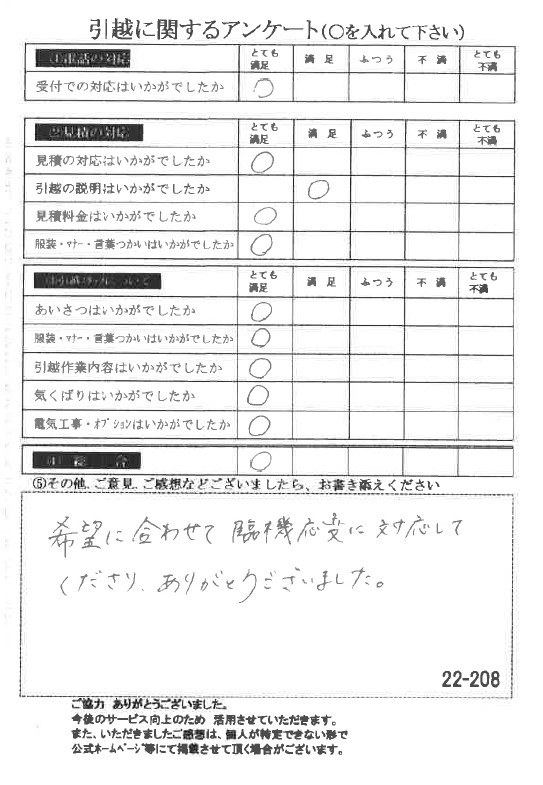 引越に関するアンケート(〇を入れて下さい)
①電話の対応 とても満足 満足 ふつう 不満 とても不満
受付での対応はいかがでしたか ○
②見積の対応 とても満足 満足 ふつう 不満 とても不満
見積の対応はいかがでしたか ○
引越の説明はいかがでしたか ○
見積料金はいかがでしたか ○
服装・マナー・言葉つかいはいかがでしたか ○
とても満足 満足 ふつう 不満 とても不満
あいさつはいかがでしたか ○
服装・マナー・言葉つかいはいかがでしたか ○
引越作業内容はいかがでしたか ○
気くばりはいかがでしたか ○
電気工事・オプションはいかがでしたか ○
④総合 ○
⑤その他、ご意見、ご感想などございましたら、お書き添えください
希望に合わせて臨機応変に対応して
くださり、ありがとうございました。
22-208
ご協力 ありがとうございました。
今後のサービス向上のため 活用させていただきます。
また、いただきましたご感想は、個人が特定できない形で
公式ホームページ等にて掲載させて頂く場合がございます。